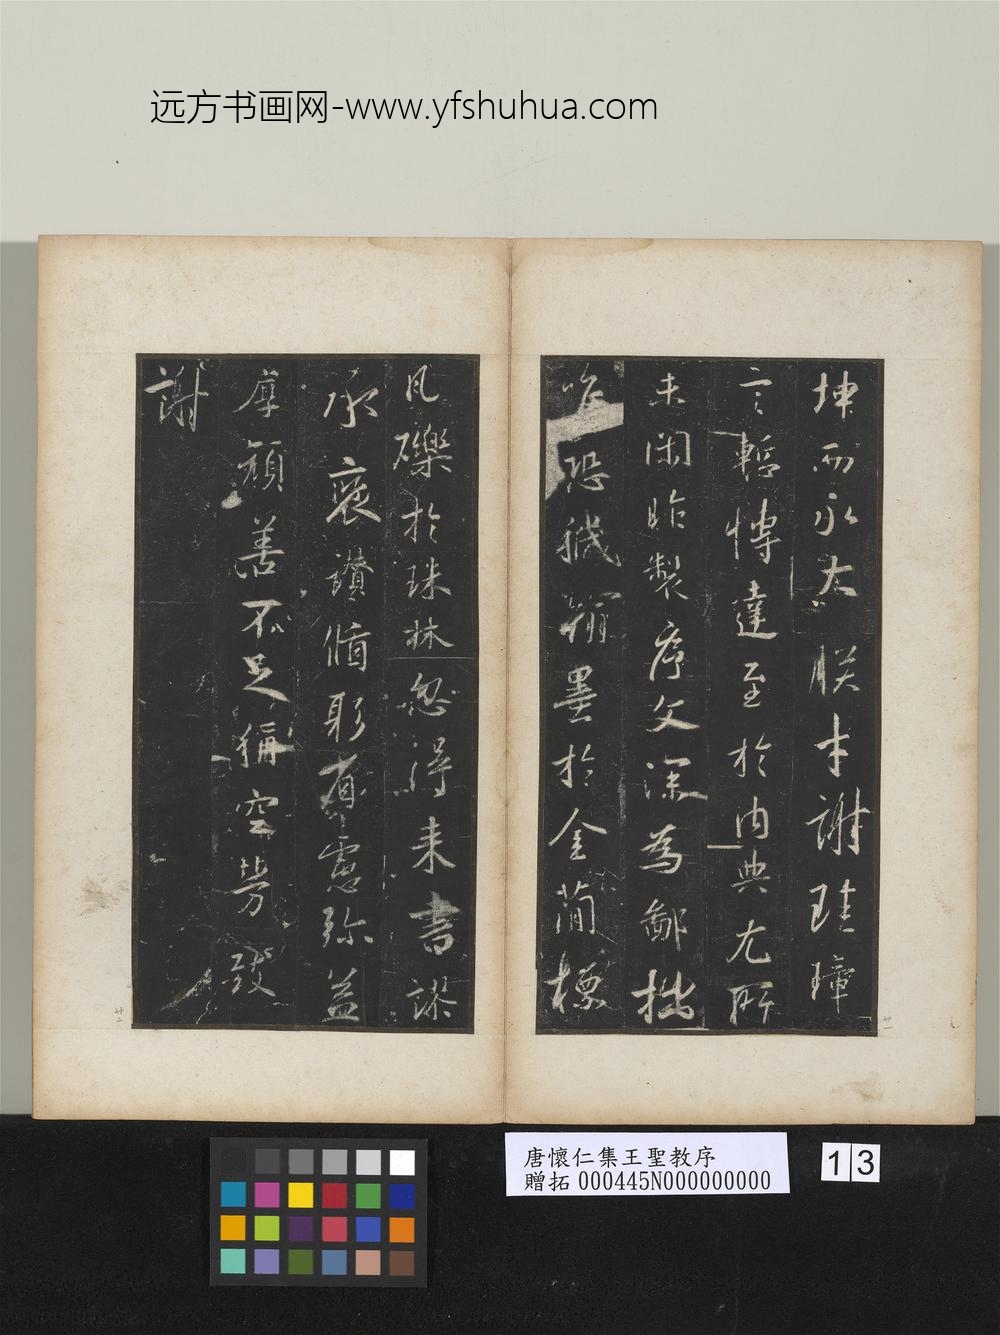 远方书画网-www.yfshuhua.com
坤而永大朕才謝珪璋
言慙博達至於內典尤所
未閑昨製序文深為鄙拙
唯恐穢翰墨於金簡標
瓦礫於珠林忽得来書謬
承褒讚循躬省慮弥益
厚顏善不足稱空勞致
謝
廿二
廿一
唐懷仁集王聖教序
贈拓 000445N000000000
13